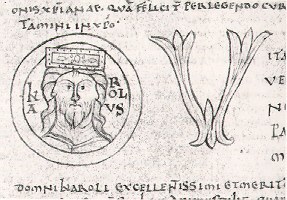 ONIS XPIANAE QUĀ FELICIT̄ PERLEGENDO CUR
TAMINI IN XPO
KA ROLVS
V
ITA
VE
N
PA
M
DOMNI KAROLI EXCELLENTISSIMI ET MERIT